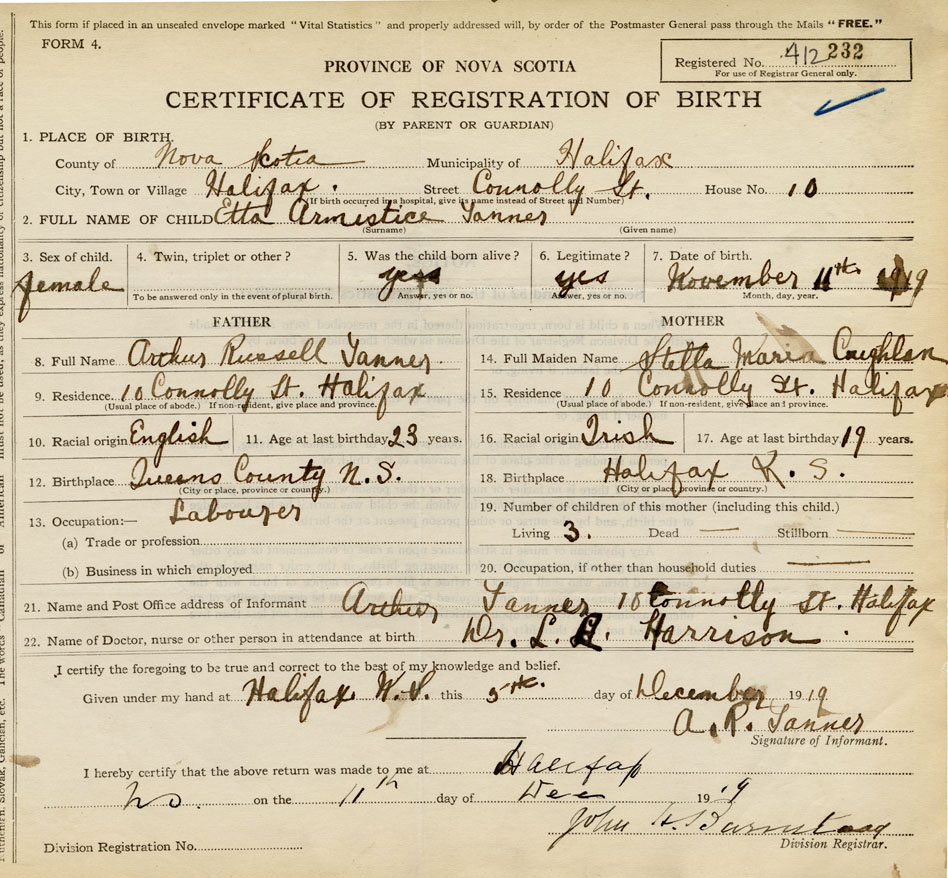 This form if placed in an unsealed envelope marked "Vital Statistics" and properly addressed will, by order of the Postmaster General pass through the Mails "FREE."
FORM 4.
Registered No. 412 232
For use of Registrar General only.
PROVINCE OF NOVA SCOTIA
CERTIFICATE OF REGISTRATION OF BIRTH
(BY PARENT OR GUARDIAN)
1. PLACE OF BIRTH.
County of Nova Scotia Municipality of Halifax
City, Town or Village Halifax. Street Connolly St. House No. 10
(If birth occurred in a hospital, give its name instead of Street and Number)
2. FULL NAME OF CHILD Etta Armistice Tanner
(Surname) (Given name)
3. Sex of child. 4. Twin, triplet or other? 5. Was the child born alive? 6. Legitimate? 7. Date of birth.
female yes yes November 11th 1919
To be answered only in the event of plural birth. Answer, yes or no. Answer, yes or no. Month, day, year.
FATHER MOTHER
8. Full Name Arthur Russell Tanner. 14. Full Maiden Name Stella Maria Caughlan
9. Residence. 10 Connolly St. Halifax 15. Residence 10 Connolly St. Halifax
(Usual place of abode.) If non-resident, give place and province. (Usual place of abode.) If non-resident, give place and province.
10. Racial origin English 11. Age at last birthday 23 years. 16. Racial origin Irish 17. Age at last birthday 19 years.
12. Birthplace Queens County N.S. 18. Birthplace Halifax N.S.
(City or place, province or country.) (City or place, province or country.)
13. Occupation:— Labourer 19. Number of children of this mother (including this child.)
(a) Trade or profession Living 3. Dead — Stillborn —
(b) Business in which employed 20. Occupation, if other than household duties —
21. Name and Post Office address of Informant Arthur Tanner 10 Connolly St. Halifax
22. Name of Doctor, nurse or other person in attendance at birth Dr. L. Harrison.
I certify the foregoing to be true and correct to the best of my knowledge and belief.
Given under my hand at Halifax N.S. this 5th. day of December 1919
A. R. Tanner
Signature of Informant.
I hereby certify that the above return was made to me at Halifax
NS. on the 11th day of Dec 1919
John
Division Registrar.
Division Registration No.